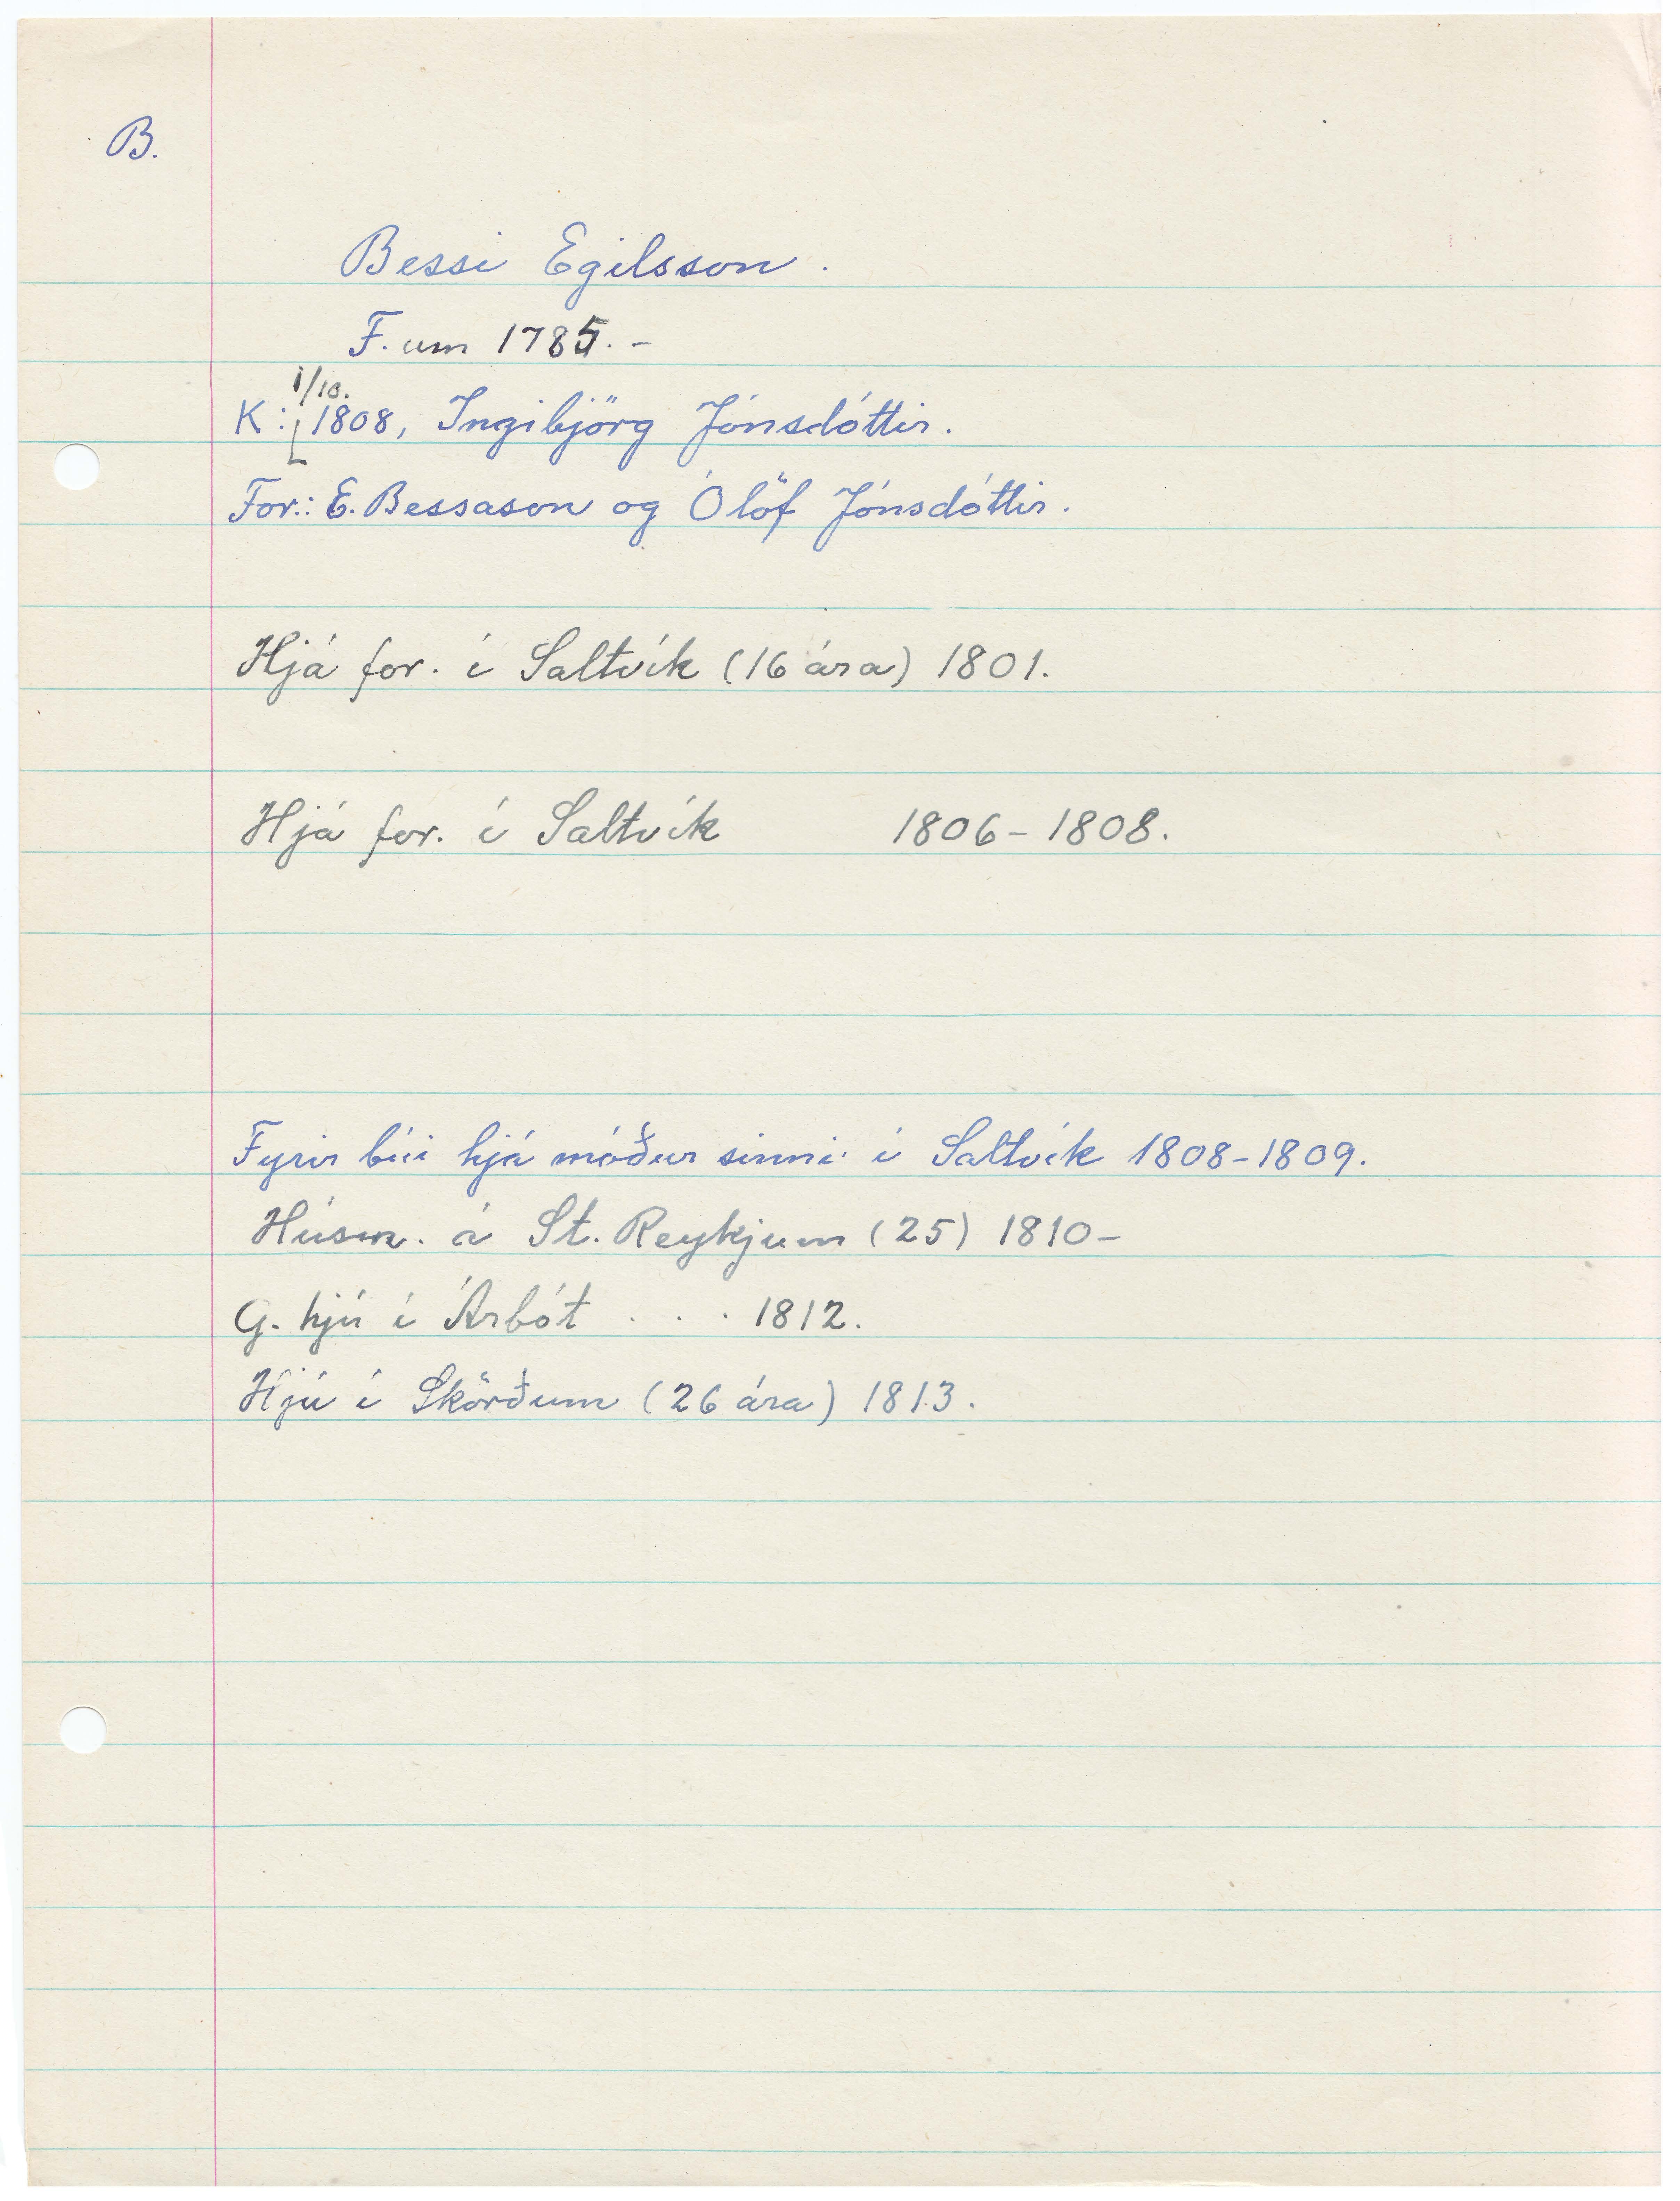 B.
Bessi Egilsson.
F. um 1785. -
1/10.
K: 1808, Ingibjörg Jónsdóttir.
For.: E. Bessason og Ólöf Jónsdóttir.
Hjá for. í Saltvík (16 ára) 1801.
Hjá for. í Saltvík 1806-1808.
Fyrir búi hjá móður sinni í Saltvík 1808-1809.
Húsm. á St. Reykjum (25) 1810-
G. hjú í Árbót . . . 1812.
Hjú í Skörðum (26 ára) 1813.